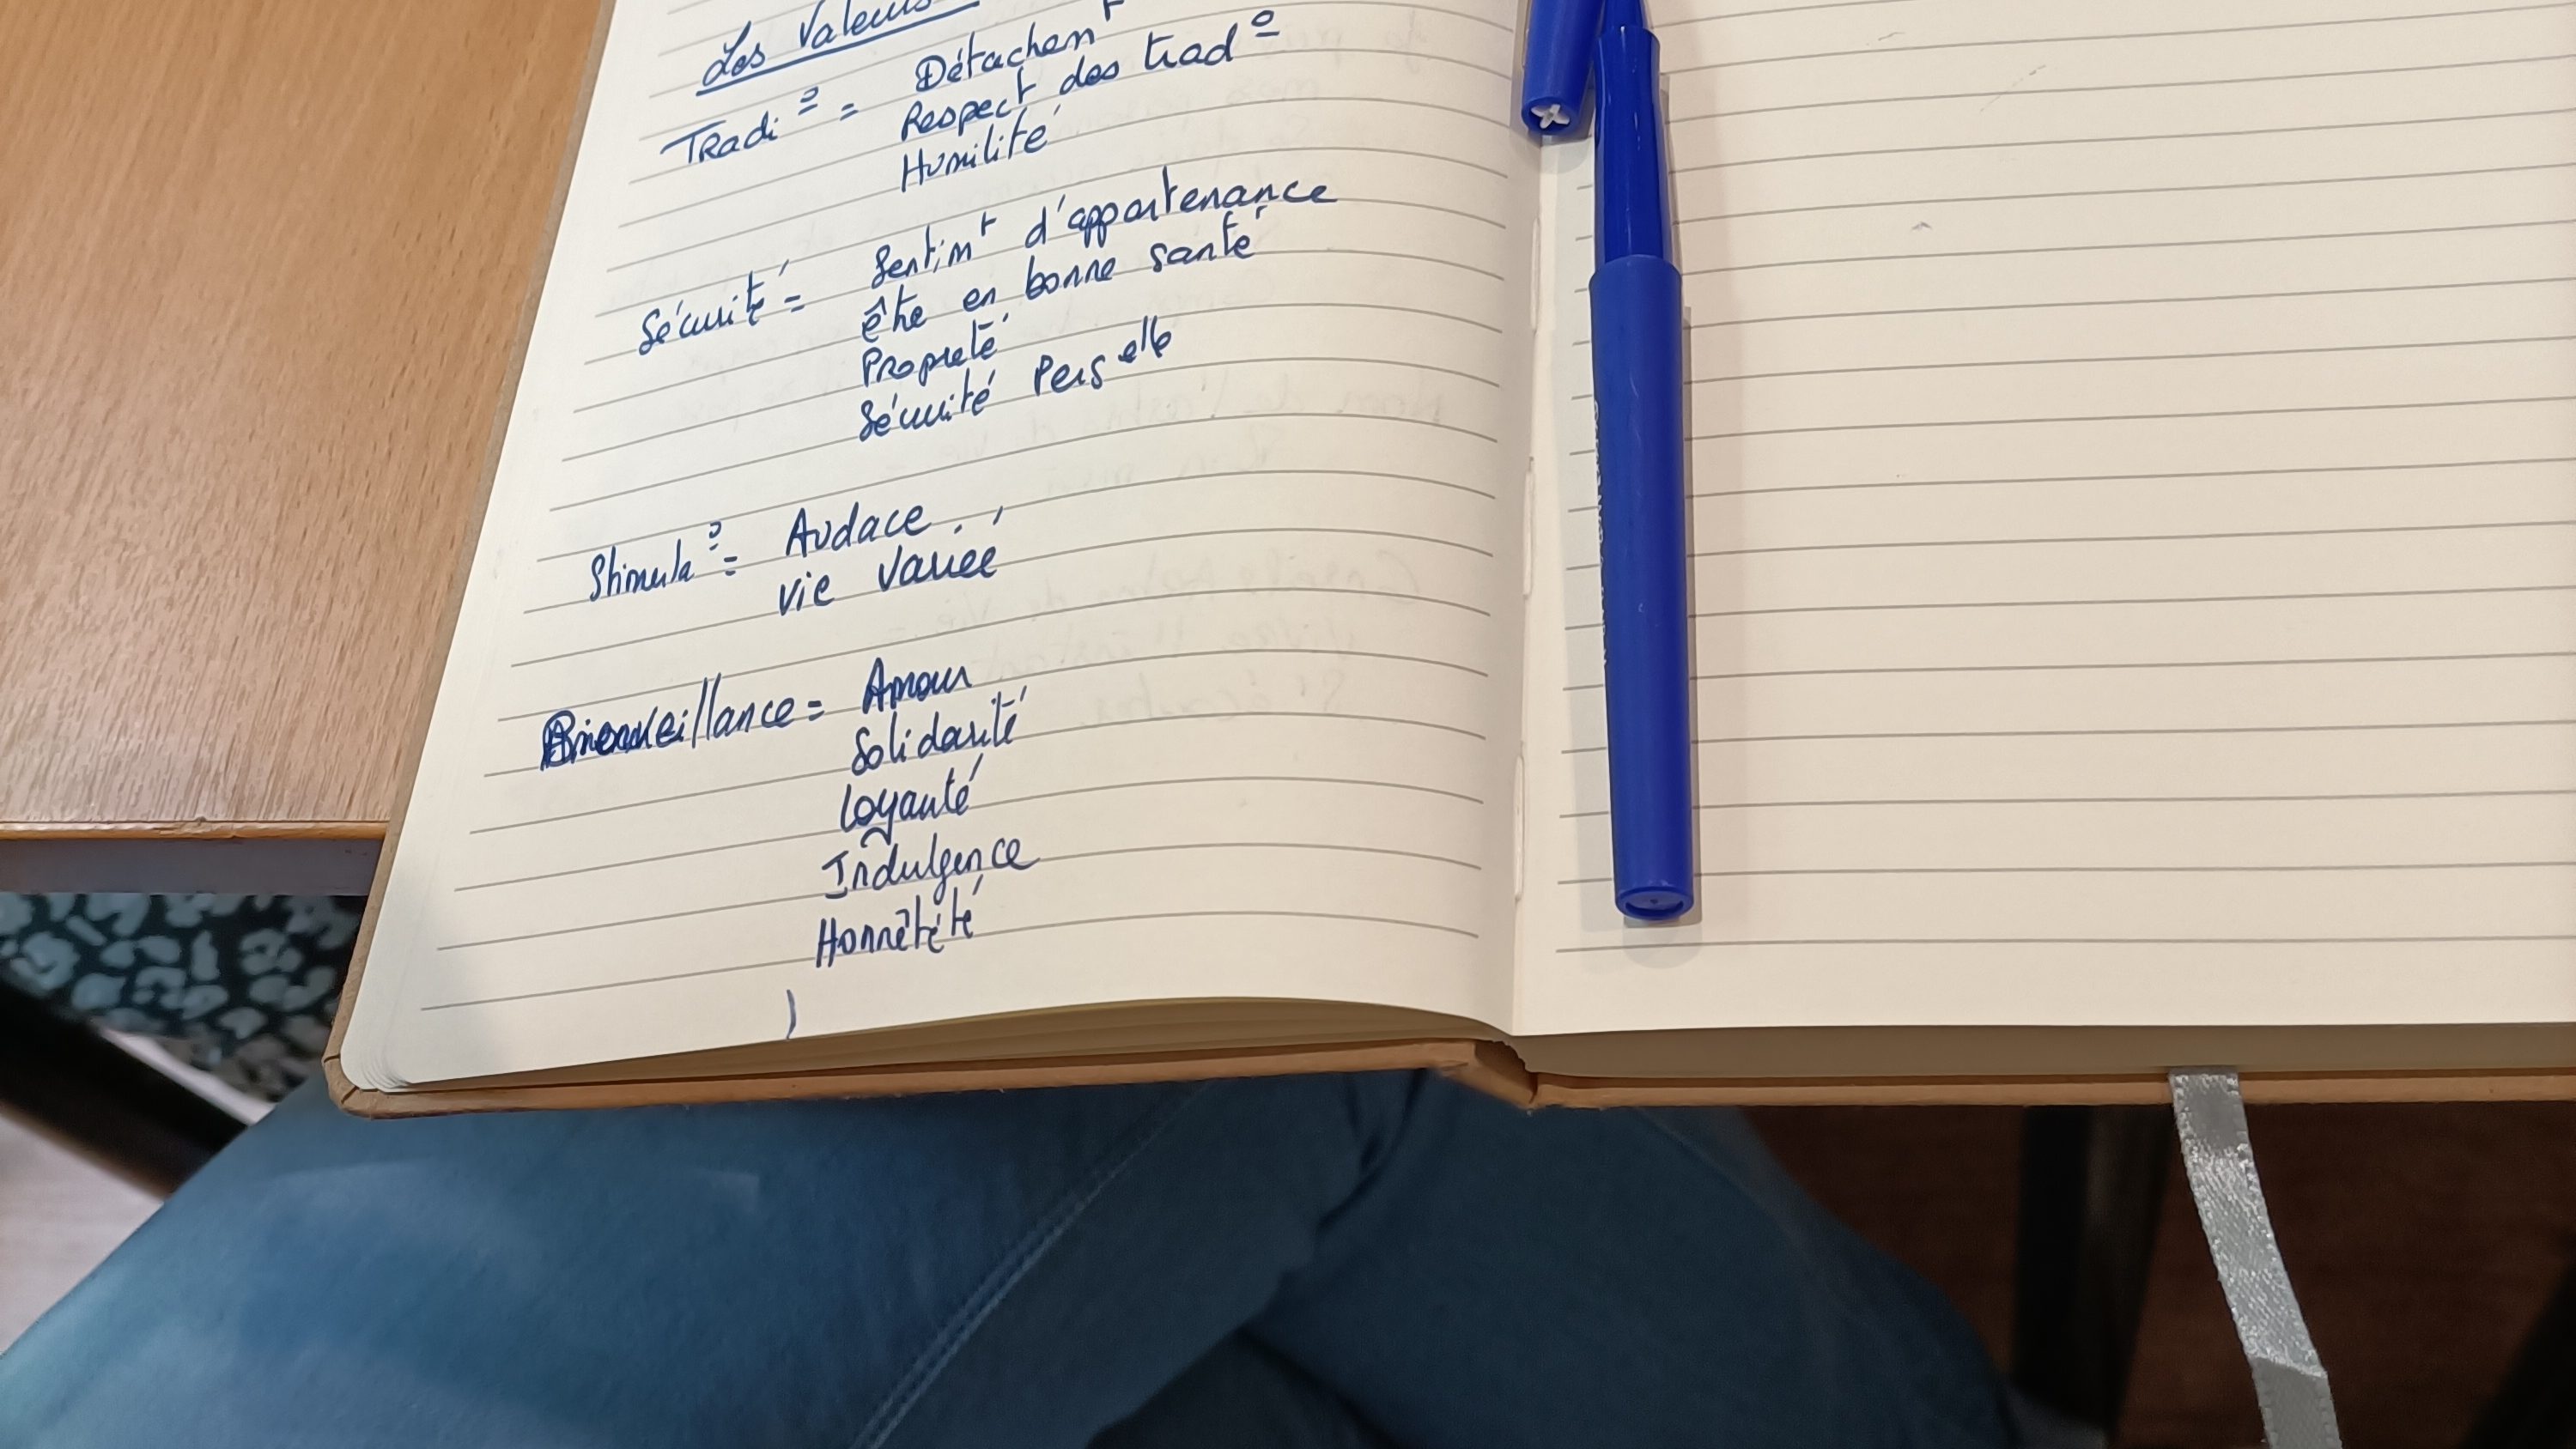 Les Valeurs
Détachemt
Tradi° = Respect des trad°
Humilité
Sentimt d'appartenance
Sécurité = être en bonne santé
Propreté
Sécurité Perselle
Stimula° = Audace
vie variée
Bienveillance = Amour
Solidarité
Loyauté
Indulgence
Honnêteté